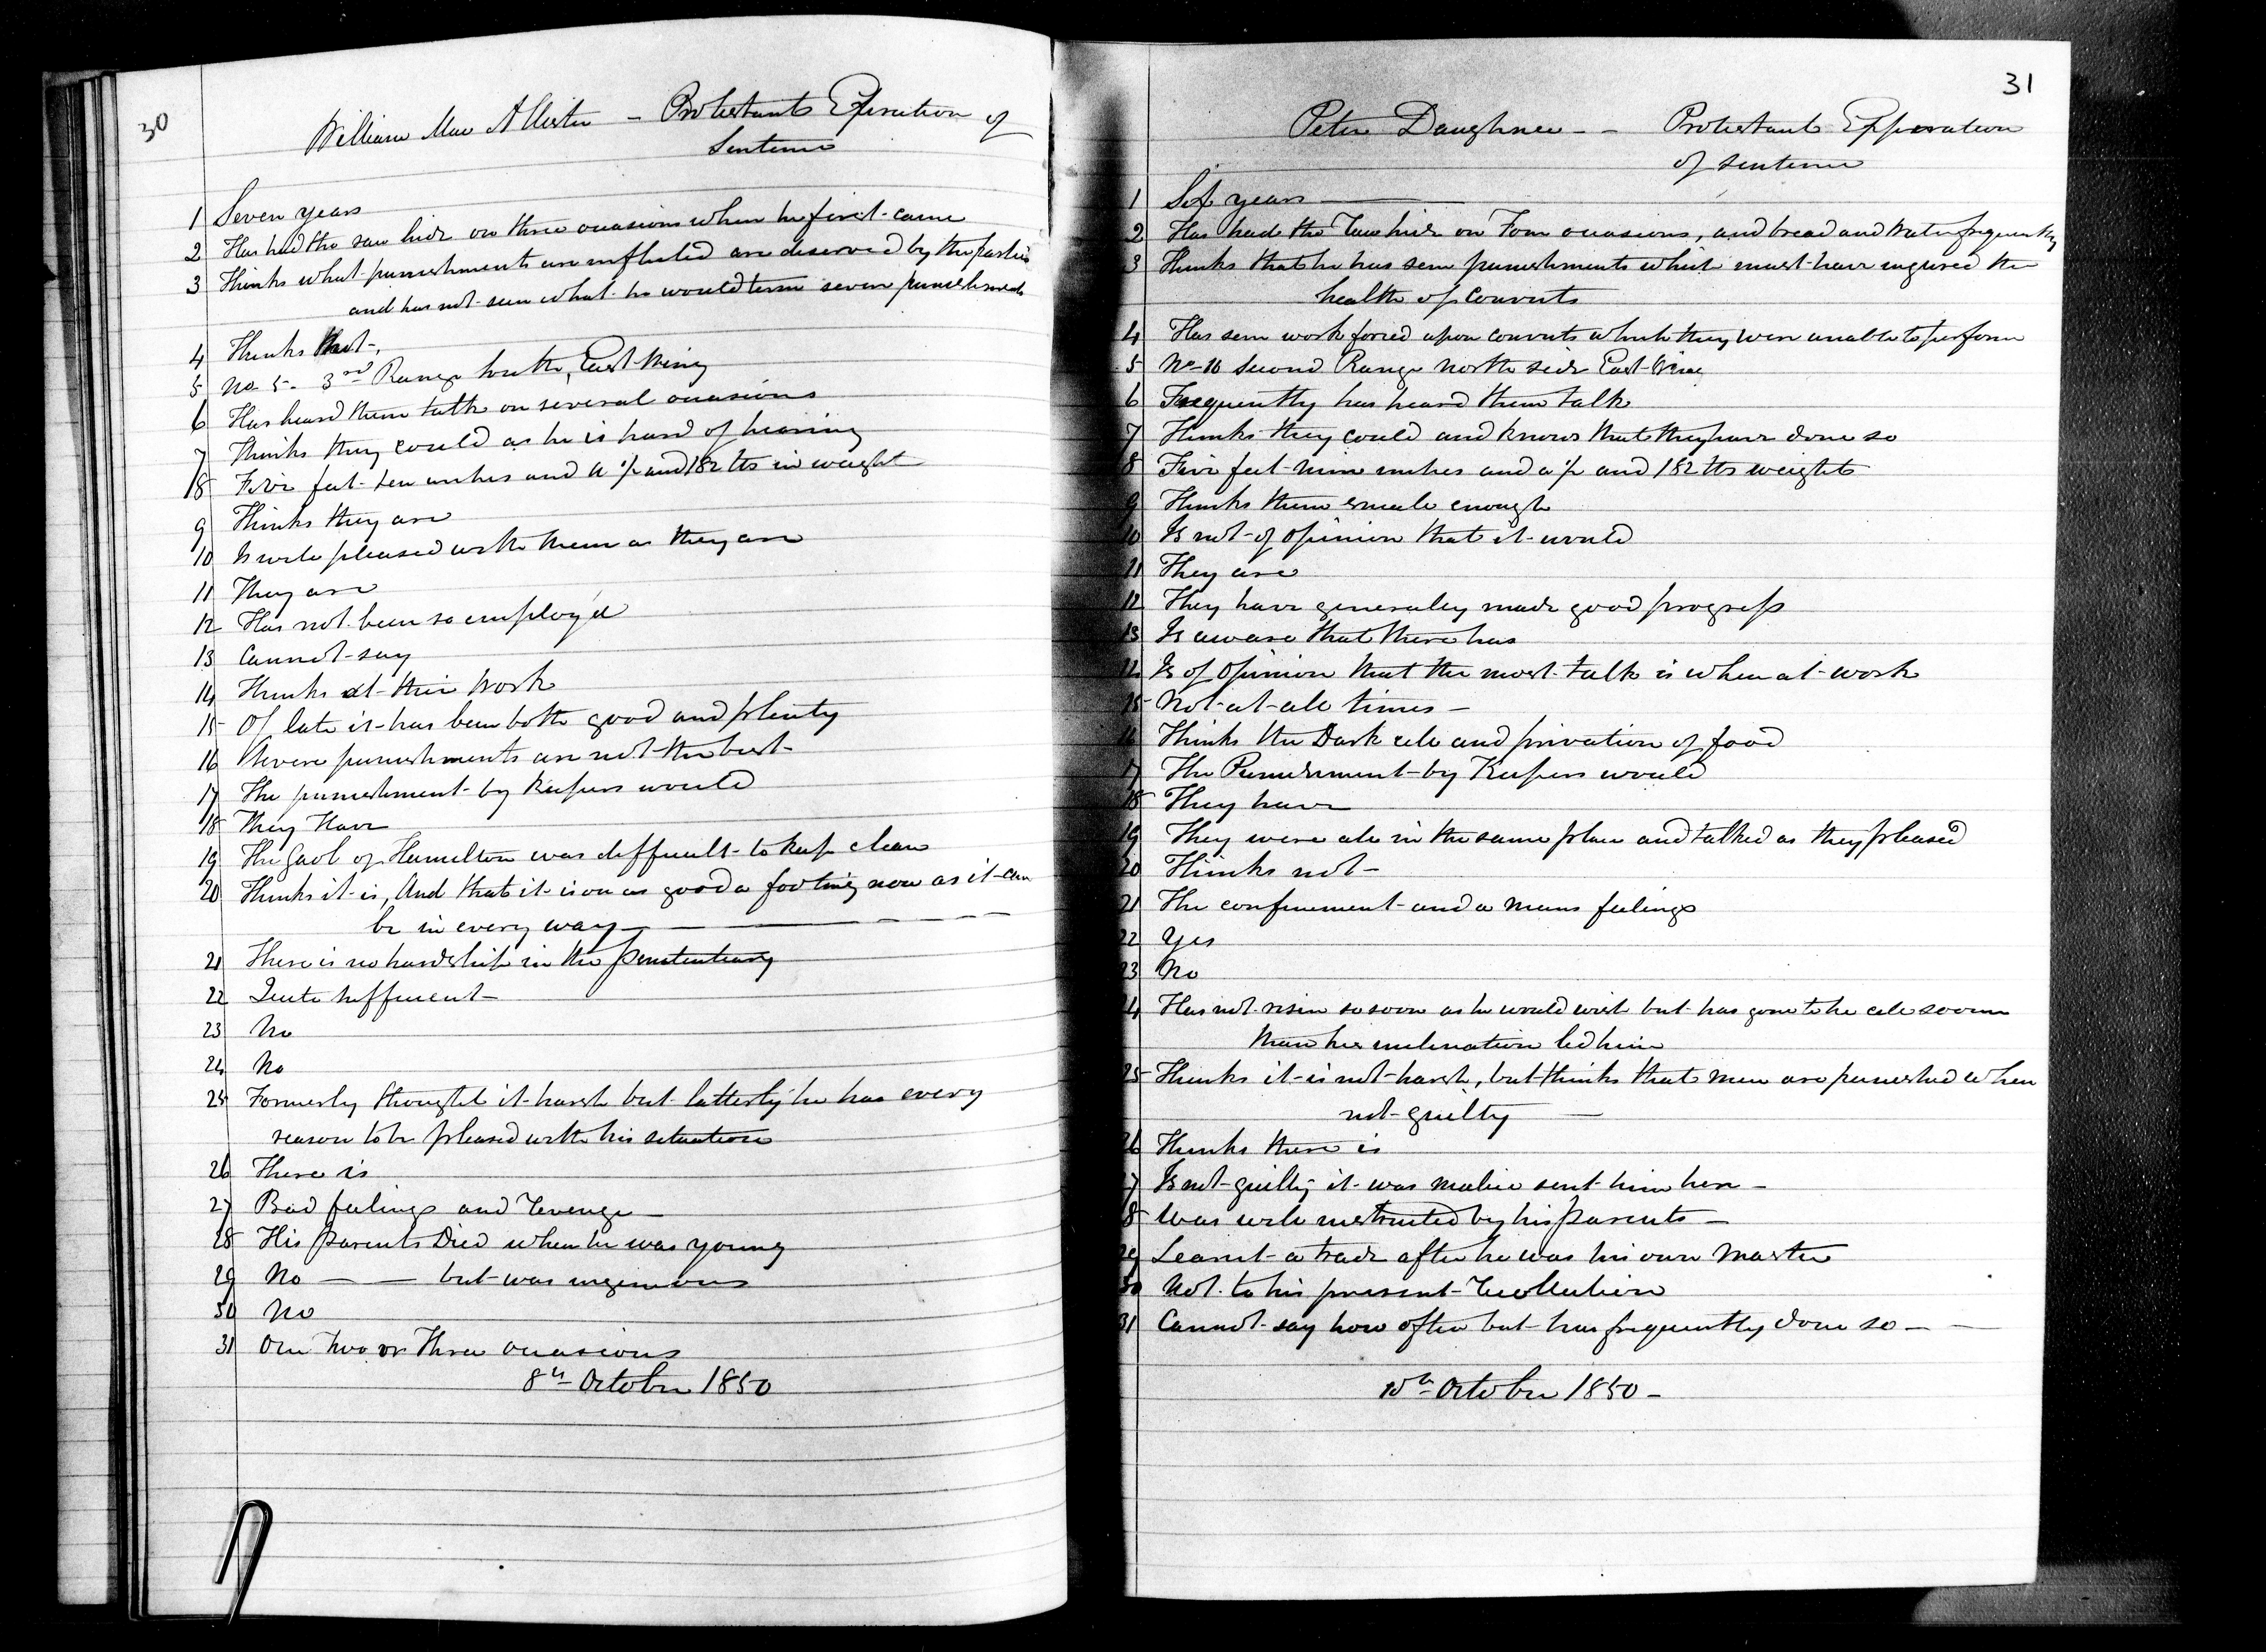 30
William Mac Allister - Protestant Expiration of
Sentence
1 Seven years
2 Has had the raw hide on three occasions when he first came
3 Thinks what punishments are inflicted are deserved by the parties
and has not seen what he would term severe punishments
4 Thinks not
5 No 5. 3rd Range South, East Wing
6 Has heard them talk on several occasions
7 Thinks they could as he is hard of hearing
8 Five feet ten inches and a ½ and 182 lbs in weight
9 Thinks they are
10 Is well pleased with them as they are
11 They are
12 Has not been so employ'd
13 Cannot say
14 Thinks at their work
15 Of late it has been both good and plenty
16 Severe punishments are not the best
17 The punishment by Keepers would
18 They Have
19 The Gaol of Hamilton was difficult to keep clean
20 Thinks it is, And that it is on as good a footing now as it can
be in every way
21 There is no hardship in the penitentiary
22 Quite sufficient
23 No
24 No
25 Formerly thought it harsh but latterly he has every
reason to be pleased with his situation
26 There is
27 Bad feelings and Revenge
28 His parents Died when he was young
29 No - - but was ingenious
30 No
31 On Two or Three occasions
8th October 1850
31
Peter Daughnee - - Protestant Expiration
of sentence
1 Six years
2 Has had the Raw hide on Four occasions, and bread and water frequently
3 Thinks that he has seen punishments which must have injured the
health of Convicts
4 Has seen work forced upon convicts which they were unable to perform
5 No 10 Second Range North side East Wing
6 Frequently has heard them talk
7 Thinks they could and knows that they have done so
8 Five feet nine inches and a ½ and 182 lbs weight
9 Thinks them small enough
10 Is not of opinion that it would
11 They are
12 They have generally made good progress
13 Is aware that there has
14 Is of opinion that the most talk is when at work
15 Not at all times -
16 Thinks the Dark cell and privation of food
17 The Punishment by Keepers would
18 They have
19 They were all in the same place and talked as they pleased
20 Thinks not -
21 The confinement and a mans feelings
22 Yes
23 No
24 Has not risen so soon as he would wish but has gone to he cell sooner
than his inclination led him
25 Thinks it is not harsh, but thinks that men are punished when
not guilty
26 Thinks there is
27 Is not guilty it was malice sent him here -
28 Was well instructed by his parents -
29 Learnt a trade after he was his own Master
30 Not to his present Recollection
31 Cannot say how often but has frequently done so -
10th October 1850 -